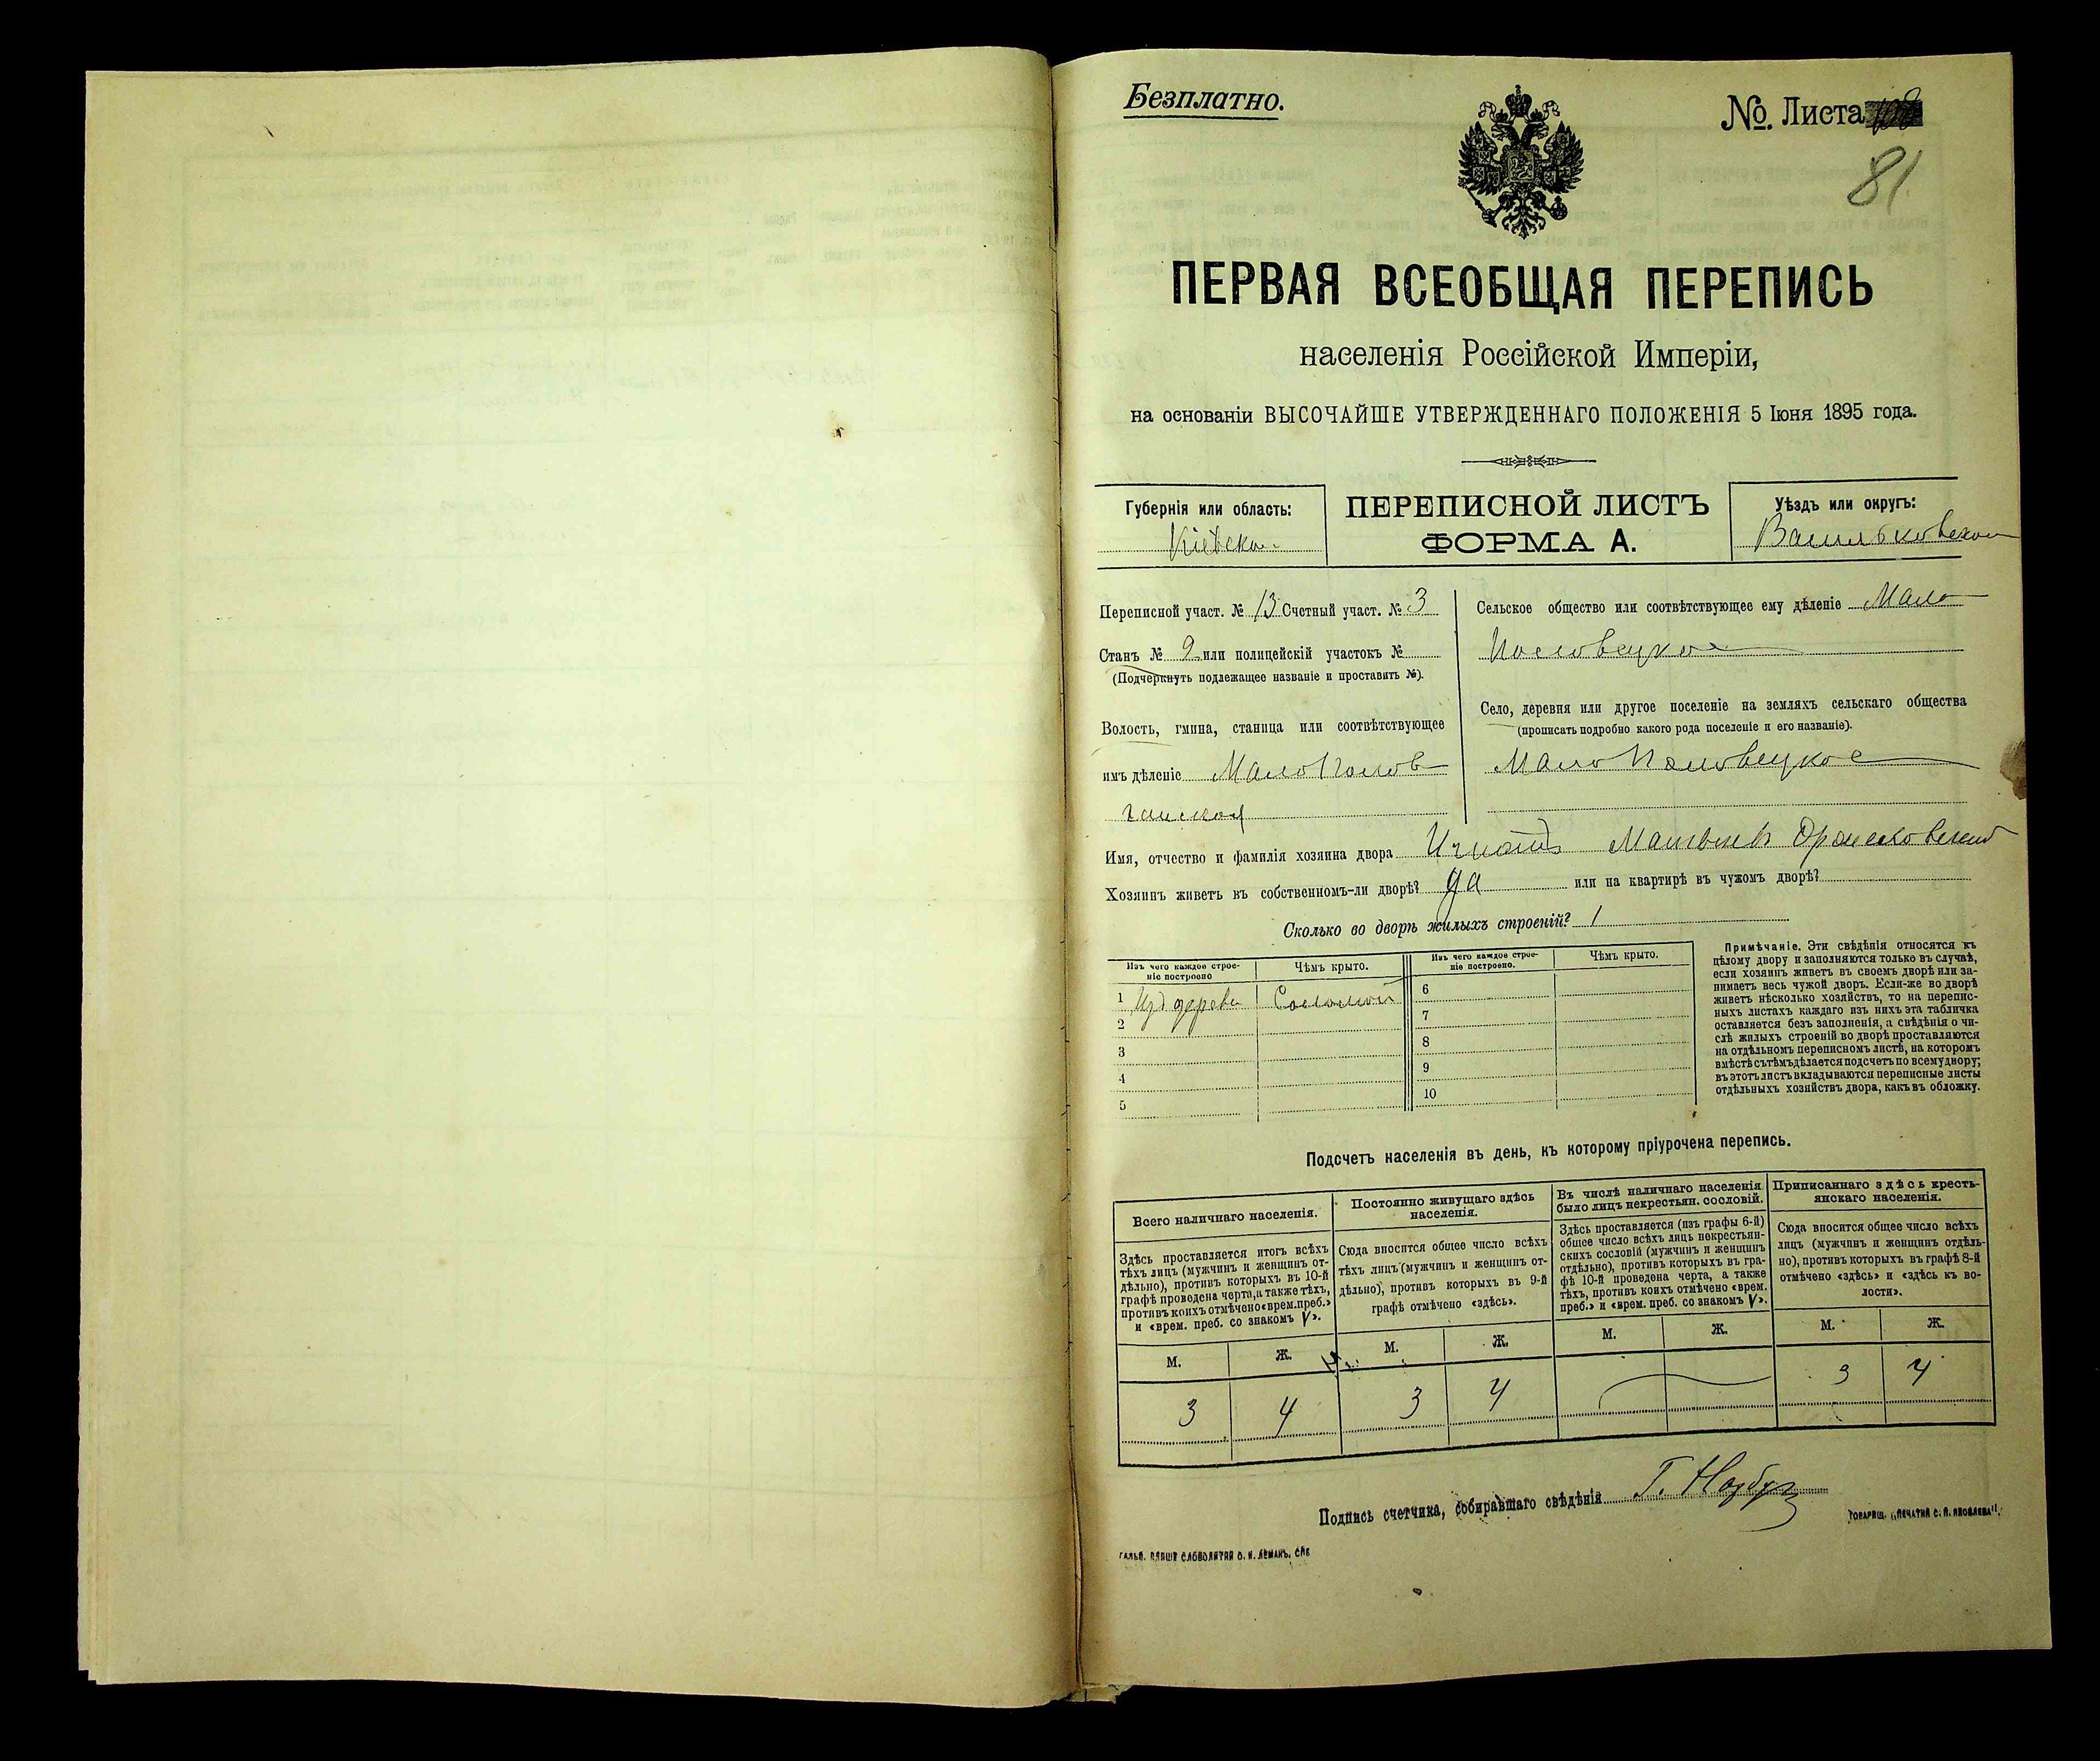 Безплатно.
№. Листа
81
ПЕРВАЯ ВСЕОБЩАЯ ПЕРЕПИСЬ
населенія Россійской Имперіи,
на основаніи ВЫСОЧАЙШЕ УТВЕРЖДЕННАГО ПОЛОЖЕНІЯ 5 Іюня 1895 года.
Губернія или область:
Кіевская
ПЕРЕПИСНОЙ ЛИСТЪ
ФОРМА А.
Уѣздъ или округъ:
Васильковской
Переписной участ. № 13 Счетный участ. № 3
Станъ № 2 или полицейскій участокъ №
(Подчеркнуть подлежащее названіе и проставить №).
Волость, гмина, станица или соотвѣтствующее
имъ дѣленіе МалоПолов
чанская
Сельское общество или соотвѣтствующее ему дѣленіе Мало
Половецкое
Село, деревня или другое поселеніе на земляхъ сельскаго общества
(прописать подробно какого рода поселеніе и его названіе).
МалоПоловецкое
Имя, отчество и фамилія хозяина двора Игнатъ Матвѣевъ
Хозяинъ живетъ въ собственномъ-ли дворѣ? да или на квартирѣ въ чужомъ дворѣ?
Сколько во дворѣ жилыхъ строеній? 1
Изъ чего каждое строе-
ніе построено
Чѣмъ крыто.
Изъ чего каждое строе-
ніе построено.
Чѣмъ крыто.
1 Изъ дерева Соломой
2
3
4
5
6
7
8
9
10
Примѣчаніе. Эти свѣдѣнія относятся къ
цѣлому двору и заполняются только въ случаѣ,
если хозяинъ живетъ въ своемъ дворѣ или за-
нимаетъ весь чужой дворъ. Если-же во дворѣ
живетъ нѣсколько хозяйствъ, то на перепис-
ныхъ листахъ каждаго изъ нихъ эта табличка
оставляется безъ заполненія, а свѣдѣнія о чи-
слѣ жилыхъ строеній во дворѣ проставляются
на отдѣльномъ переписномъ листѣ, на которомъ
вмѣстѣ съ тѣмъ дѣлается подсчетъ по всему двору;
въ этотъ листъ вкладываются переписные листы
отдѣльныхъ хозяйствъ двора, какъ въ обложку.
Подсчетъ населенія въ день, къ которому пріурочена перепись.
Всего наличнаго населенія.
Здѣсь проставляется итогъ всѣхъ
тѣхъ лицъ (мужчинъ и женщинъ от-
дѣльно), противъ которыхъ въ 10-й
графѣ проведена черта, а также тѣхъ,
противъ коихъ отмѣчено «врем. преб.»
и «врем. преб. со знакомъ V».
Постоянно живущаго здѣсь
населенія.
Сюда вносится общее число всѣхъ
тѣхъ лицъ (мужчинъ и женщинъ от-
дѣльно), противъ которыхъ въ 9-й
графѣ отмѣчено «здѣсь».
Въ числѣ наличнаго населенія
было лицъ некрестьян. сословій.
Здѣсь проставляется (изъ графы 6-й)
общее число всѣхъ лицъ некрестьян-
скихъ сословій (мужчинъ и женщинъ
отдѣльно), противъ которыхъ въ гра-
фѣ 10-й проведена черта, а также
тѣхъ, противъ коихъ отмѣчено «врем.
преб.» и «врем. преб. со знакомъ V».
Приписаннаго здѣсь кресть-
янскаго населенія.
Сюда вносится общее число всѣхъ
лицъ (мужчинъ и женщинъ отдѣль-
но), противъ которыхъ въ графѣ 8-й
отмѣчено «здѣсь» и «здѣсь къ во-
лости».
М. Ж. М. Ж. М. Ж. М. Ж.
3 4 3 4 3 4
Подпись счетчика, собиравшаго свѣдѣнія Г.
ТОВАРИЩ. „ПЕЧАТНЯ С. П. ЯКОВЛЕВА“.